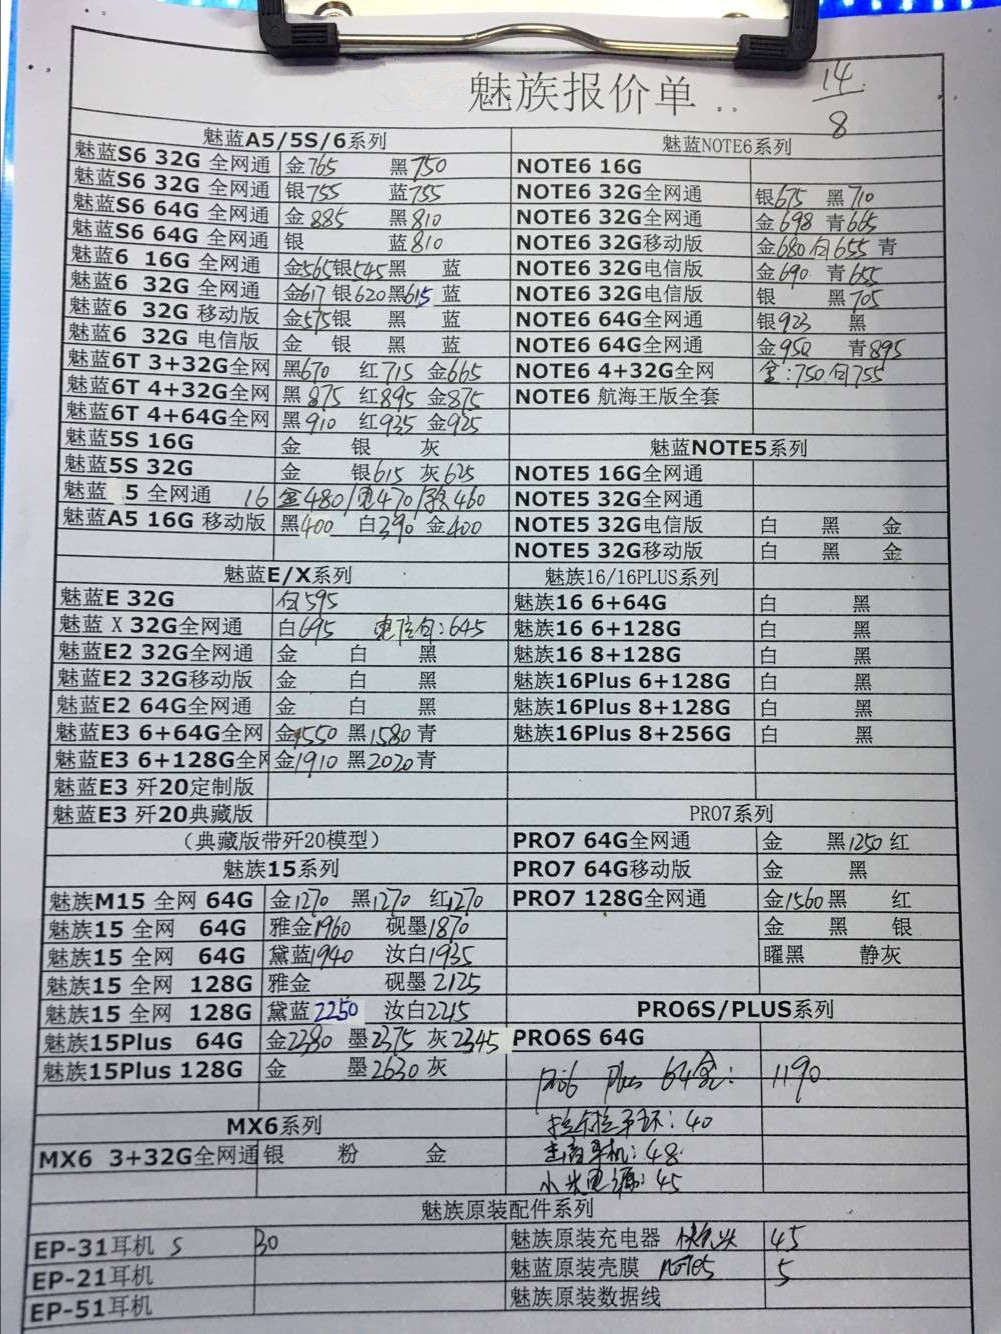 魅族报价单 ..
14
8
魅蓝A5/5S/6系列
魅蓝S6 32G 全网通 金765 黑750
魅蓝S6 32G 全网通 银755 蓝755
魅蓝S6 64G 全网通 金885 黑810
魅蓝S6 64G 全网通 银 蓝810
魅蓝6 16G 全网通 金565银545黑 蓝
魅蓝6 32G 全网通 金617 银620黑615 蓝
魅蓝6 32G 移动版 金575银 黑 蓝
魅蓝6 32G 电信版 金 银 黑 蓝
魅蓝6T 3+32G全网 黑670 红715 金665
魅蓝6T 4+32G全网 黑875 红895 金875
魅蓝6T 4+64G全网 黑910 红935 金925
魅蓝5S 16G 金 银 灰
魅蓝5S 32G 金 银615 灰625
魅蓝 5 全网通 16 金480/电470/移460
魅蓝A5 16G 移动版 黑400 白390 金400
魅蓝E/X系列
魅蓝E 32G 白595
魅蓝 X 32G全网通 白695 电信白:645
魅蓝E2 32G全网通 金 白 黑
魅蓝E2 32G移动版 金 白 黑
魅蓝E2 64G全网通 金 白 黑
魅蓝E3 6+64G全网 金1550 黑1580 青
魅蓝E3 6+128G全网 金1910 黑2020青
魅蓝E3 歼20定制版
魅蓝E3 歼20典藏版
（典藏版带歼20模型）
魅族15系列
魅族M15 全网 64G 金1270 黑1270 红1270
魅族15 全网 64G 雅金1960 砚墨1870
魅族15 全网 64G 黛蓝1940 汝白1935
魅族15 全网 128G 雅金 砚墨2125
魅族15 全网 128G 黛蓝2250 汝白2215
魅族15Plus 64G 金2380 墨2375 灰2345
魅族15Plus 128G 金 墨2630 灰
MX6系列
MX6 3+32G全网通 银 粉 金
魅蓝NOTE6系列
NOTE6 16G
NOTE6 32G全网通 银675 黑710
NOTE6 32G全网通 金698 青665
NOTE6 32G移动版 金680白655 青
NOTE6 32G电信版 金690 青655
NOTE6 32G电信版 银 黑705
NOTE6 64G全网通 银923 黑
NOTE6 64G全网通 金950 青895
NOTE6 4+32G全网 金:750白755
NOTE6 航海王版全套
魅蓝NOTE5系列
NOTE5 16G全网通
NOTE5 32G全网通
NOTE5 32G电信版 白 黑 金
NOTE5 32G移动版 白 黑 金
魅族16/16PLUS系列
魅族16 6+64G 白 黑
魅族16 6+128G 白 黑
魅族16 8+128G 白 黑
魅族16Plus 6+128G 白 黑
魅族16Plus 8+128G 白 黑
魅族16Plus 8+256G 白 黑
PRO7系列
PRO7 64G全网通 金 黑1250 红
PRO7 64G移动版 金 黑
PRO7 128G全网通 金1560黑 红
金 黑 银
曜黑 静灰
PRO6S/PLUS系列
PRO6S 64G
Pro6 Plus 64金: 1190
拉卡拉手环:40
耳机:48
小米电源:45
魅族原装配件系列
EP-31耳机 S 30
EP-21耳机
EP-51耳机
魅族原装充电器 快充头 45
魅蓝原装壳膜 NOTE5 5
魅族原装数据线